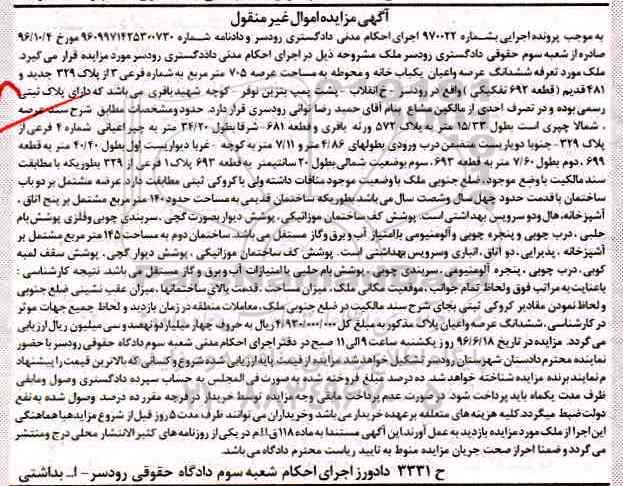 آگهی مزایده اموال غیر منقول
به موجب پرونده اجرایی بشماره ۹۷۰۰۲۲ اجرای احکام مدنی دادگستری رودسر و دادنامه شماره ۹۶۰۹۹۷۱۴۲۵۳۰۰۷۳۰ مورخ ۹۶/۱۰/۴
صادره از شعبه سوم حقوقی دادگستری رودسر ملک مشروحه ذیل در اجرای احکام مدنی دادگستری رودسر مورد مزایده قرار می گیرد.
ملک مورد تعرفه ششدانگ عرصه واعیان یکباب خانه و محوطه به مساحت عرصه ۷۰۵ متر مربع به شماره فرعی ۳ از پلاک ۳۲۹ جدید و
۴۸۱ قدیم (قطعه ۶۹۲ تفکیکی) واقع در رودسر - خ انقلاب - پشت پمپ بنزین نوفر - کوچه شهید باقری می باشد که دارای پلاک ثبتی
رسمی بوده و در تصرف احدی از مالکین مشاع بنام آقای حمید رضا توانی رودسری قرار دارد. حدود و مشخصات مطابق شرح سند عرصه
، شمالا چپری است بطول ۱۵/۳۳ متر به پلاک ۵۷۲ ورثه باقری و قطعه ۶۸۱ - شرقا بطول ۳۴/۲۰ متر به چپر اعیانی شماره ۴ فرعی از
پلاک ۳۲۹ - جنوبا دو یاریست متضمن درب ورودی بطولهای ۴/۸۶ متر و ۷/۱۱ متر به کوچه - غربا دیواریست اول بطول ۴۰/۴۰ متر به قطعه
۶۹۹ ، دوم بطول ۷/۶۰ متر به قطعه ۶۹۳ ، سوم بوضعیت شمالی بطول ۲۰ سانتیمتر به قطعه ۶۹۳ پلاک ۱ فرعی از ۳۲۹ بطوریکه با مطابقت
سند مالکیت با وضع موجود، ضلع جنوبی ملک با وضعیت موجود منافات داشته ولی با کروکی ثبتی مطابقت دارد. عرصه مشتمل بر دو باب
ساختمان با قدمت حدود چهل سال وشصت سال می باشد بطوریکه ساختمان قدیمی به مساحت حدود ۱۴۰ متر مربع مشتمل بر پنج اتاق ،
آشپزخانه، هال و دو سرویس بهداشتی است. پوشش کف ساختمان موزائیکی، پوشش دیوار بصورت گچی، سربندی چوبی وفلزی پوشش بام
حلبی ، درب چوبی و پنجره چوبی و آلومنیومی با امتیاز آب و برق وگاز مستقل می باشد. ساختمان دوم به مساحت ۱۴۵ متر مربع مشتمل بر
آشپزخانه ، پذیرایی، دو اتاق ، انباری وسرویس بهداشتی است. پوشش کف ساختمان موزائیکی ، پوشش دیوار گچی، پوشش سقف لمبه
کوبی، درب چوبی، پنجره آلومینیومی، سربندی چوبی، پوشش بام حلبی با امتیازات آب و برق و گاز مستقل می باشد. نتیجه کارشناسی :
باعنایت به مراتب فوق ولحاظ تمام جوانب ، موقعیت مکانی ملک ، میزان مساحت ، قدمت بالای ساختمانها ، میزان عقب نشینی ضلع جنوبی
و لحاظ نمودن مقادیر کروکی ثبتی بجای شرح سند مالکیت در ضلع جنوبی ملک، معاملات منطقه در زمان بازدید و لحاظ جمیع جهات موثر
در کارشناسی، ششدانگ عرصه واعیان پلاک مذکور به مبلغ کل ۴/۹۳۰/۰۰۰/۰۰۰ ریال به حروف چهار میلیارد و نهصد و سی میلیون ریال ارزیابی
می گردد. مزایده در تاریخ ۹۶/۶/۱۸ روز یکشنبه ساعت ۹ الی ۱۱ صبح در دفتر اجرای احکام مدنی شعبه سوم دادگاه حقوقی رودسر با حضور
نماینده محترم دادستان شهرستان رودسر تشکیل خواهد شد مزایده از قیمت پایه ارزیابی شده شروع و کسانی که بالاترین قیمت را پیشنهاد
نمایند برنده مزایده شناخته خواهد شد. ده درصد مبلغ فروخته شده بصورت فی المجلس به حساب سپرده دادگستری وصول ومابقی
ظرف مدت یکماه باید پرداخت شود. در صورت عدم پرداخت مابقی وجه مزایده توسط خریدار در فرجه مقرر ده درصد وصول شده به نفع
دولت ضبط میگردد. کلیه هزینه های متعلقه بر عهده خریدار می باشد و خریداران می توانند ظرف مدت ۵ روز قبل از شروع مزاید هبا هماهنگی
این اجرا از ملک مورد مزایده بازدید به عمل آورند. این آگهی مستندا به ماده ۱۱۸ ق.ا.م در یکی از روزنامه های کثیر الانتشار محلی درج و منتشر
می گردد و ضمنا احراز صحت جریان مزایده منوط به تایید ریاست محترم دادگاه می باشد.
ح ۳۳۳۱ دادورز اجرای احکام شعبه سوم دادگاه حقوقی رودسر - ا_ بداشتی